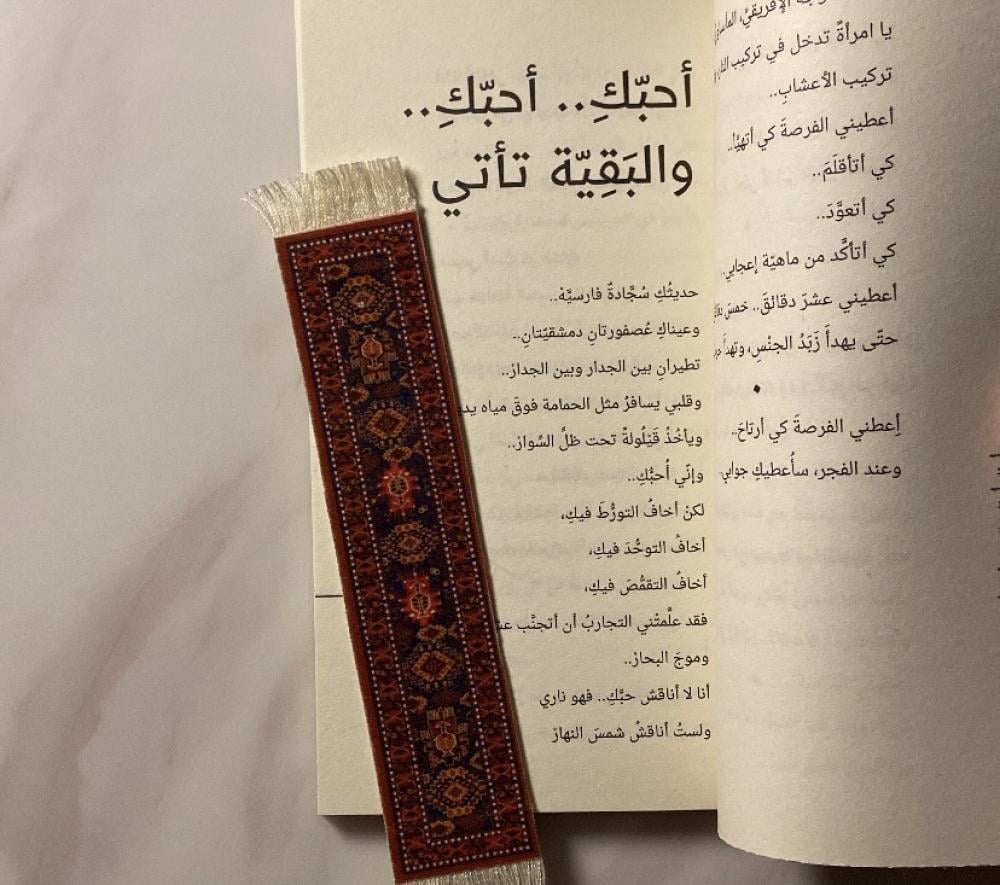 الإفريقيِّ،
يا امرأةً تدخل في تركيب
تركيب الأعشابِ..
أعطيني الفرصةَ كي أتهيَّأ..
كي أتأقلَمَ..
كي أتعوَّدَ..
كي أتأكَّد من ماهيّة إعجابي..
أعطيني عشرَ دقائقَ.. خمسَ
حتّى يهدأَ زَبَدُ الجنْسِ، وتهدأ
إعطني الفرصةَ كي أرتاحَ..
وعند الفجر، سأُعطيكِ جوابي
أحبّكِ.. أحبّكِ..
والبَقِيّة تأتي
حديثُكِ سُجَّادةٌ فارسيَّهْ..
وعيناكِ عُصفورتانِ دمشقيّتانِ..
تطيرانِ بين الجدار وبين الجدارْ..
وقلبي يسافرُ مثل الحمامة فوقَ مياه
ويأخُذُ قَيْلُولةً تحت ظلِّ السِّوارْ..
وإنّي أُحبُّكِ..
لكنْ أخافُ التورُّطَ فيكِ،
أخافُ التوحُّدَ فيكِ،
أخافُ التقمُّصَ فيكِ،
فقد علَّمتْني التجاربُ أن أتجنَّب
وموجَ البحارْ..
أنا لا أناقش حبَّكِ.. فهو ناري
ولستُ أناقشُ شمسَ النهارْ